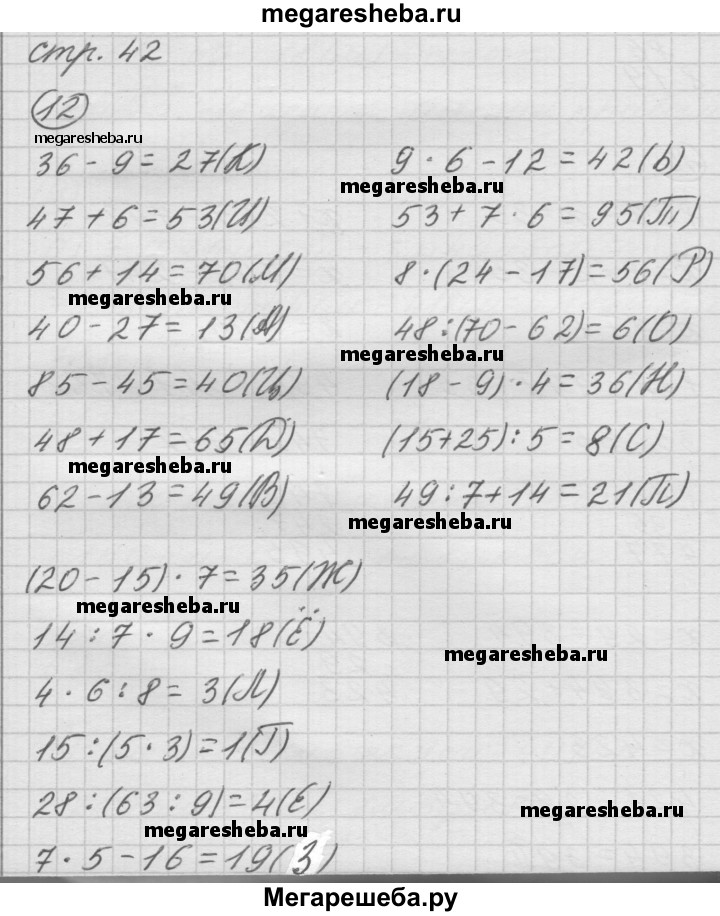 megaresheba.ru
стр. 42
12
megaresheba.ru
36 - 9 = 27(К)
47 + 6 = 53(И)
56 + 14 = 70(М)
megaresheba.ru
40 - 27 = 13(А)
85 - 45 = 40(Ц)
48 + 17 = 65(D)
megaresheba.ru
62 - 13 = 49(В)
9 · 6 - 12 = 42(Ь)
megaresheba.ru
53 + 7 · 6 = 95(П)
8 · (24 - 17) = 56(Р)
48 : (70 - 62) = 6(О)
megaresheba.ru
(18 - 9) · 4 = 36(Н)
(15+25) : 5 = 8(С)
49 : 7 + 14 = 21(П)
megaresheba.ru
(20 - 15) · 7 = 35(Ж)
megaresheba.ru
14 : 7 · 9 = 18(Ё)
megaresheba.ru
4 · 6 : 8 = 3(Л)
15 : (5 · 3) = 1(Г)
28 : (63 : 9) = 4(Е)
megaresheba.ru
megaresheba.ru
7 · 5 - 16 = 19(З)
Мегарешеба.ру